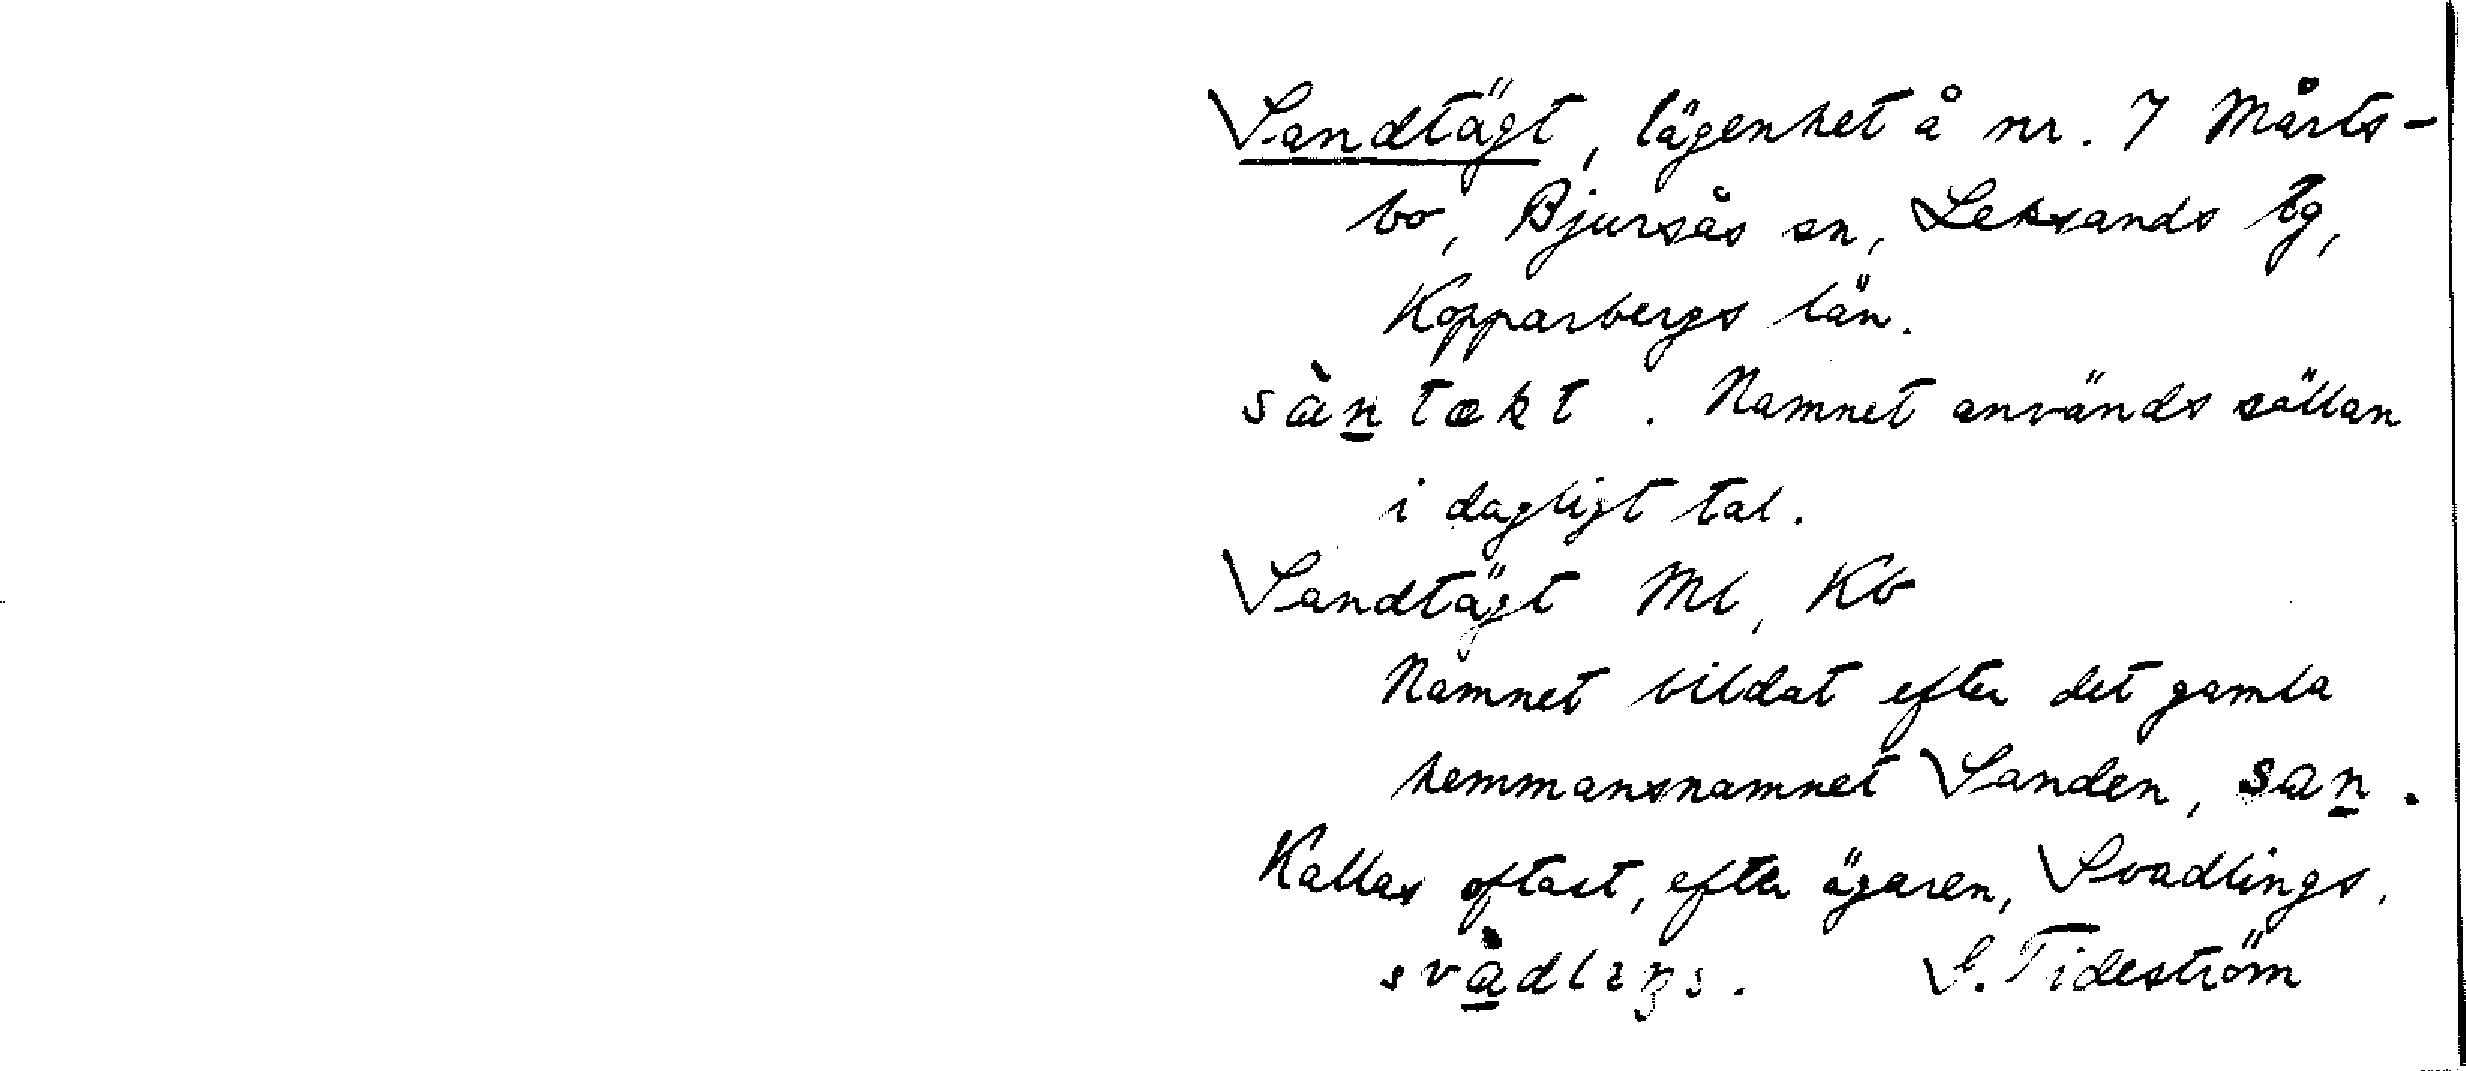 Sandtägt, lägenhet å nr. 7 Mårts-
bo, Bjursås sn, Leksands tg,
Kopparbergs län.
sàn̲tækt. Namnet används sällan
i dagligt tal.
Sandtägt Ml, Kb
Namnet bildat efter det gamla
hemmansnamnet Sanden, san̲.
Kallas oftast, efter ägaren, Svadlings,
svà̲dlıŋs. S. Tideström